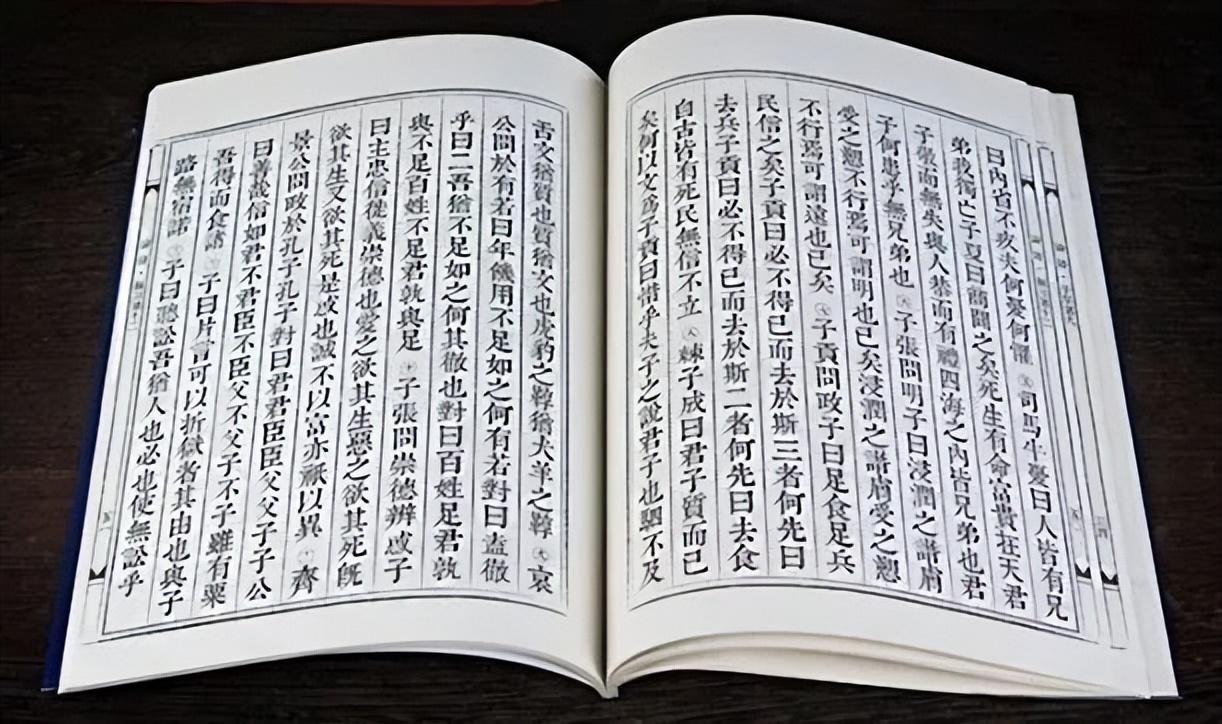 曰內省不疚夫何憂何懼 ㊄ 司馬牛憂曰人皆有兄
弟我獨亡子夏曰商聞之矣死生有命富貴在天君
子敬而無失與人恭而有禮四海之內皆兄弟也君
子何患乎無兄弟也 ㊅ 子張問明子曰浸潤之譖膚
受之愬不行焉可謂明也已矣浸潤之譖膚受之愬
不行焉可謂遠也已矣 ㊆ 子貢問政子曰足食足兵
民信之矣子貢曰必不得已而去於斯三者何先曰
去兵子貢曰必不得已而去於斯二者何先曰去食
自古皆有死民無信不立 ㊇ 棘子成曰君子質而已
矣何以文為子貢曰惜乎夫子之說君子也駟不及
舌文猶質也質猶文也虎豹之鞟猶犬羊之鞟 ㊈ 哀
公問於有若曰年饑用不足如之何有若對曰盍徹
乎曰二吾猶不足如之何其徹也對曰百姓足君孰
與不足百姓不足君孰與足 ㊉ 子張問崇德辨惑子
曰主忠信徙義崇德也愛之欲其生惡之欲其死既
欲其生又欲其死是惑也誠不以富亦祇以異 齊
景公問政於孔子孔子對曰君君臣臣父父子子公
曰善哉信如君不君臣不臣父不父子不子雖有粟
吾得而食諸 子曰片言可以折獄者其由也與子
路無宿諾 子曰聽訟吾猶人也必也使無訟乎